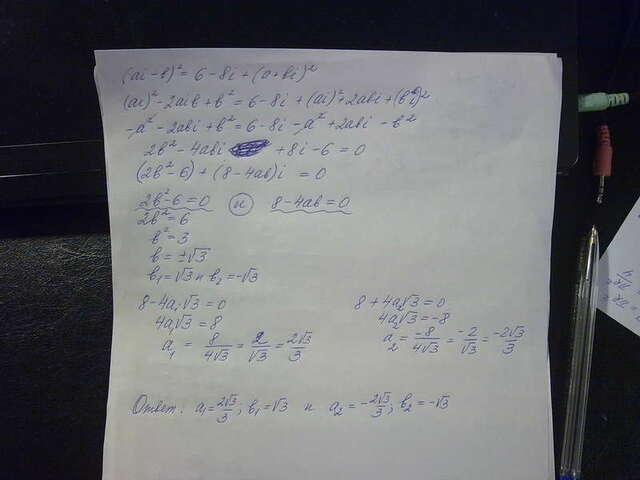 (ai - b)² = 6 - 8i + (a + bi)²
(ai)² - 2aib + b² = 6 - 8i + (ai)² + 2abi + (bi)²
-a² - 2abi + b² = 6 - 8i - a² + 2abi - b²
2b² - 4abi + 8i - 6 = 0
(2b² - 6) + (8 - 4ab)i = 0
2b² - 6 = 0 и 8 - 4ab = 0
2b² = 6
b² = 3
b = ±√3
b₁ = √3 и b₂ = -√3
8 - 4a₁√3 = 0
4a₁√3 = 8
a₁ = 8/4√3 = 2/√3 = 2√3/3
8 + 4a₂√3 = 0
4a₂√3 = -8
a₂ = -8/4√3 = -2/√3 = -2√3/3
Ответ: a₁ = 2√3/3; b₁ = √3 и a₂ = -2√3/3; b₂ = -√3